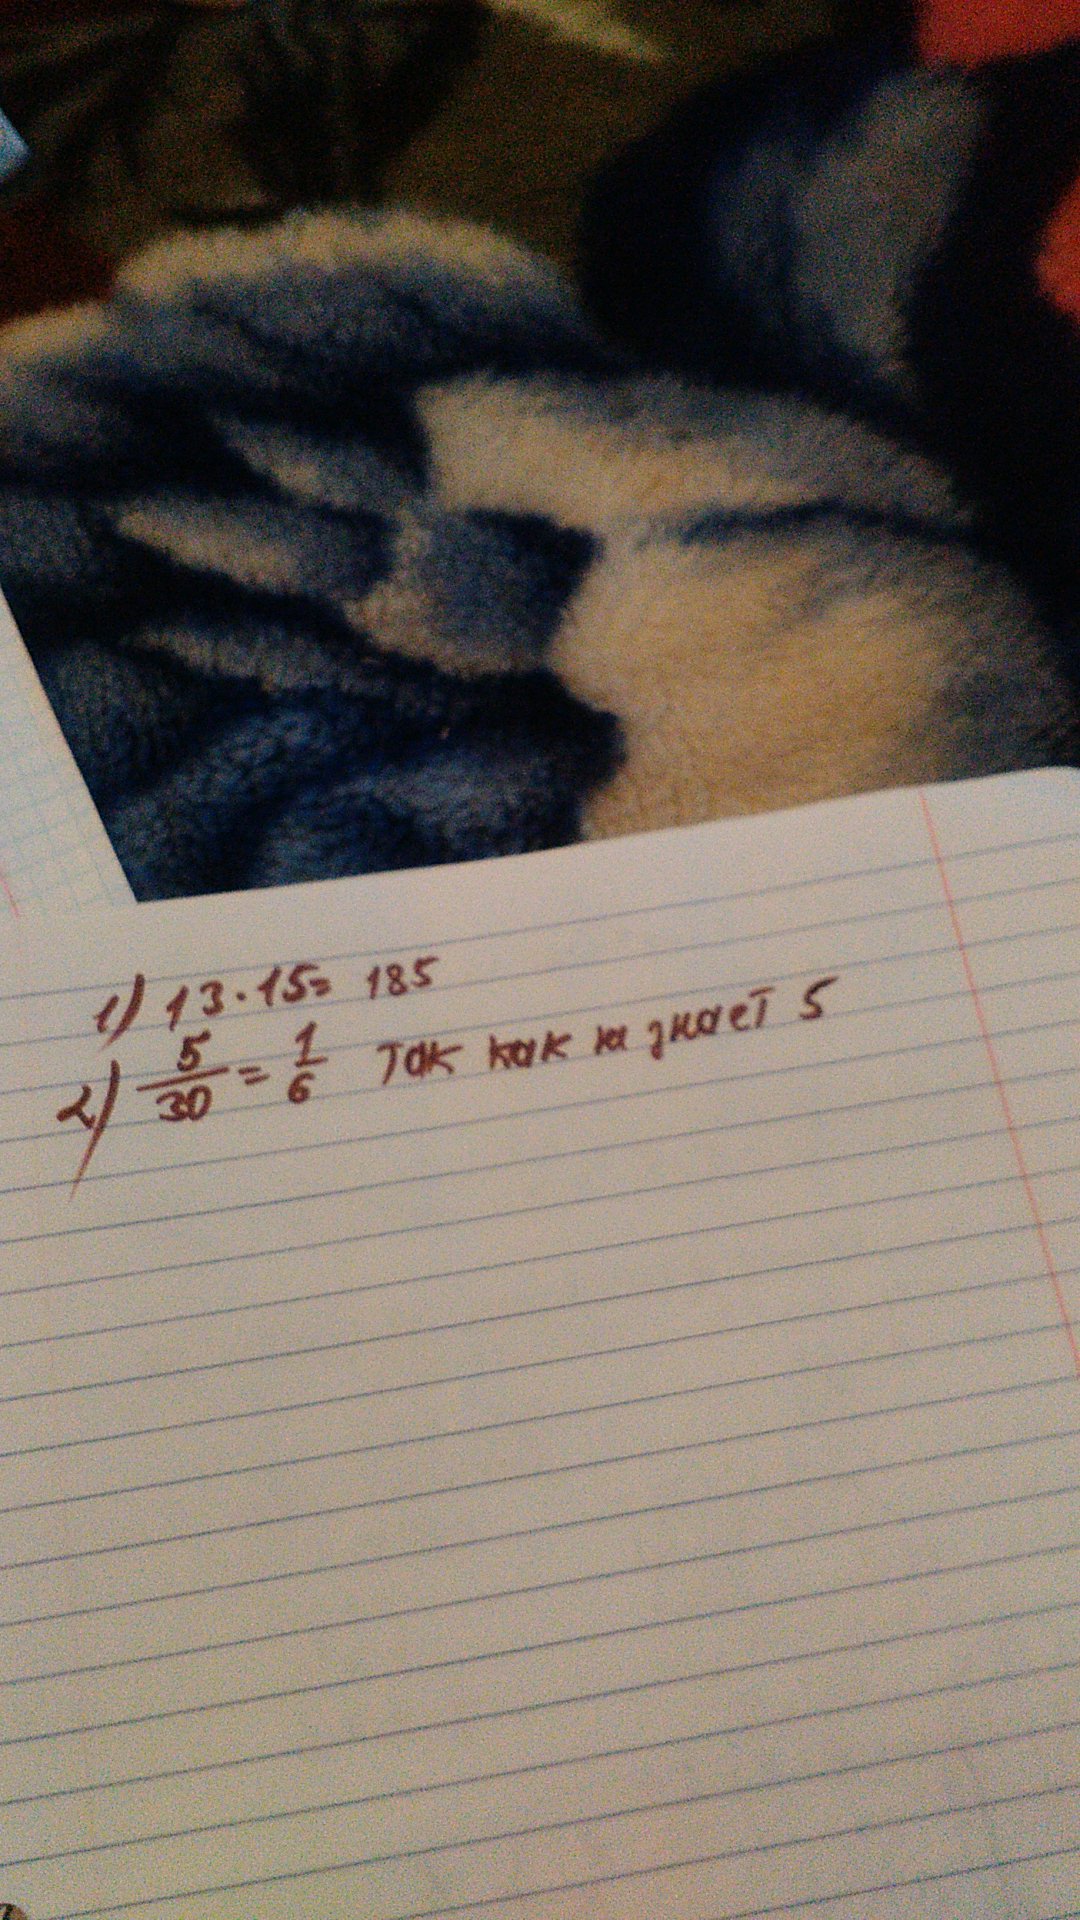 1) 13 · 15 = 185
2) 5/30 = 1/6 так как не знает 5